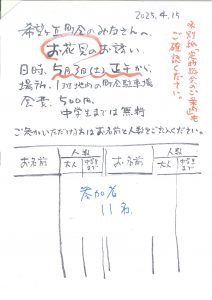 2025.4.15
希望ヶ丘町会のみなさんへ
お花見のお誘い
日時、5月3日(土)正午から
場所、1丁目地内の町会駐車場
会費、500円
中学生までは無料
ご参加いただける方はお名前と人数をご記入ください。
ご確認ください。
お名前
人数
大人
中学生まで
お名前
人数
大人
中学生まで
参加者
11名